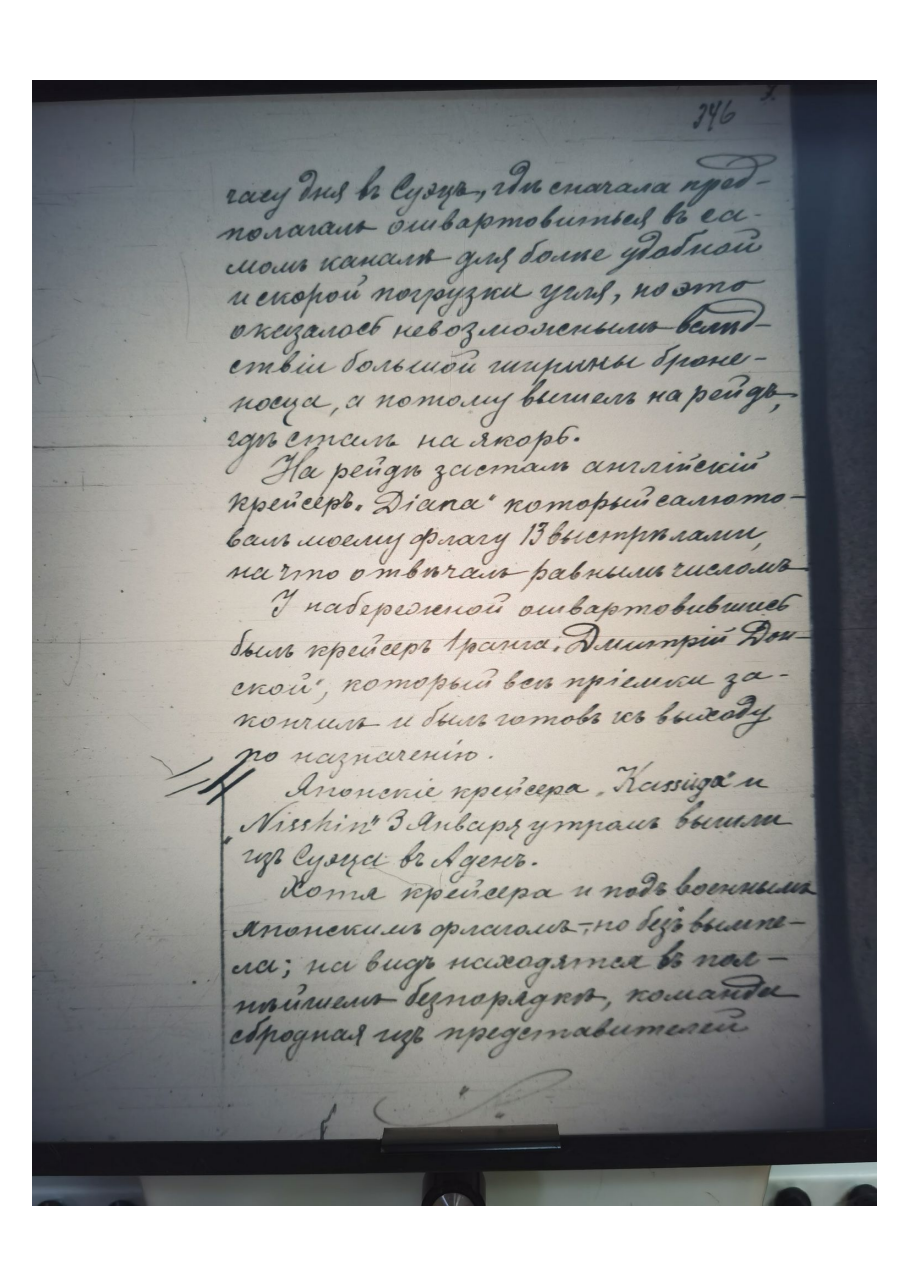 346
часу дня въ Суэцъ, гдѣ сначала пред-
полагалъ ошвартовиться въ са-
момъ каналѣ для болѣе удобной
и скорой погрузки угля, но это
оказалось невозможнымъ вслѣд-
ствіи большой ширины броне-
носца, а потому вышелъ на рейдъ,
гдѣ сталъ на якорь.
На рейдѣ засталъ англійскій
крейсеръ „Diana" который салюто-
валъ моему флагу 13 выстрѣлами,
на что отвѣчалъ равнымъ числомъ
У набережной ошвартовившись
былъ крейсеръ 1 ранга „Дмитрій Дон-
ской", который всѣ пріемки за-
кончилъ и былъ готовъ къ выходу
по назначенію.
Японскіе крейсера „Kassuga" и
„Nisshin" 3 Января утромъ вышли
изъ Суэца въ Аденъ.
Хотя крейсера и подъ военнымъ
японскимъ флагомъ, — но безъ вымпе-
ла; на видъ находятся въ пол-
нѣйшемъ безпорядкѣ, команда
сбродная изъ представителей